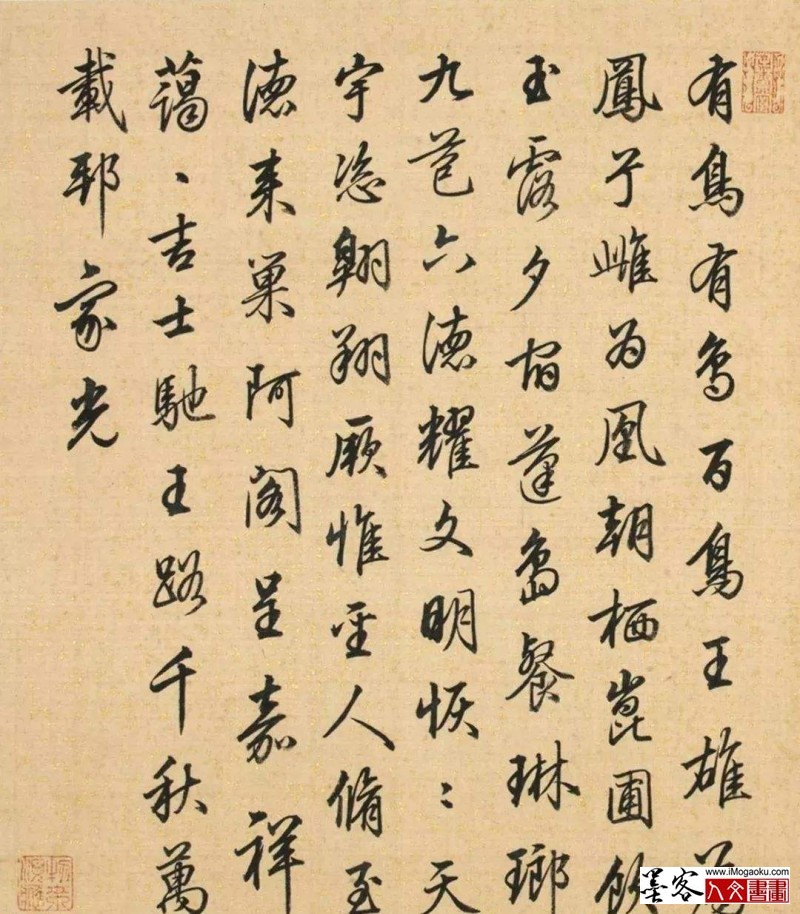 有鳥有鳥百鳥王雄為
鳳兮雌為凰朝栖崑圃飲
玉露夕宿蓬島餐琳瑯
九苞六德耀文明恢〻天
宇恣翱翔厥惟聖人脩至
德来巢阿閣呈嘉祥
藹〻吉士馳王路千秋萬
載邦家光
墨客
www.iMogaoku.com
人文書畫